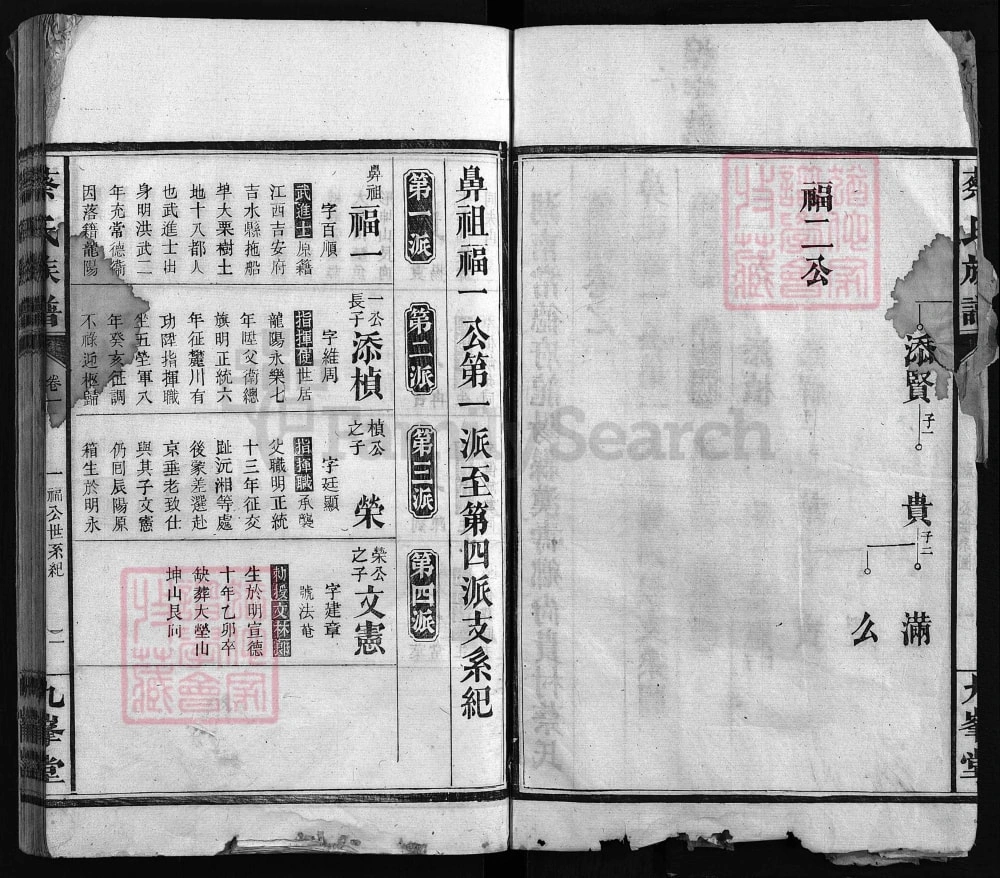 蔡氏族譜
九峯堂
福二公
添賢
子一
貴
子二
滿
么
鼻祖福一公第一派至第四派支系紀
第一派
第二派
第三派
第四派
鼻祖
福一
字百順
武進士原籍
江西吉安府
吉水縣拖船
單大栗樹土
地十八都人
也武進士出
身明洪武二
年充常德衛
因落籍龍陽
一公
長子
添楨
字維周
指揮使世居
龍陽永樂七
年陞父衛總
旗明正統六
年征麓川有
功陞指揮職
坐五塋軍八
年癸亥征調
不祿迎柩歸
楨公
之子
榮
字廷顯
指揮職承襲
父職明正統
十三年征交
趾沅湘等處
後蒙差選赴
京垂老致仕
與其子文憲
仍囘辰陽原
籍生於明永
榮公
之子
文憲
字建章
號法菴
勅授文林郎
生於明宣德
十年乙卯卒
缺葬大塋山
坤山艮向
蔡氏族譜
卷一
一福公世系紀
九峯堂
FamilySearch